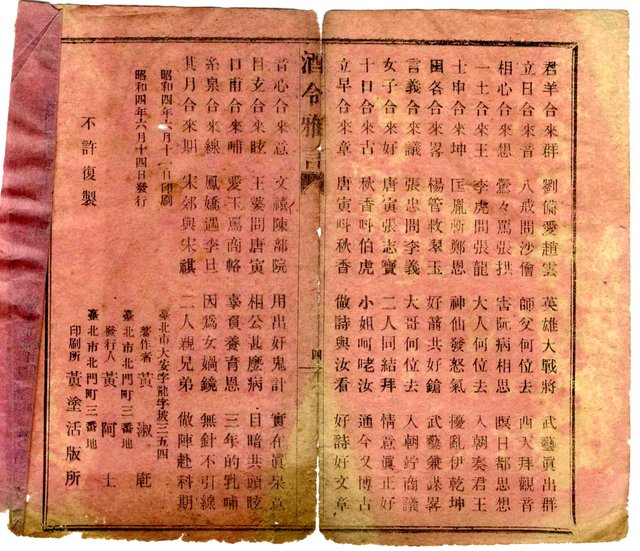 君羊合來群 劉備愛趙雲 英雄大戰將 武藝眞出群
立日合來音 八戒問沙僧 師父何位去 西天拜觀音
相心合來想 鶯々罵張拱 害阮病相思 暝日都思想
一土合來王 李虎問張龍 大人何位去 入朝奏君王
士申合來坤 匡胤斬鄭恩 神仙發怒氣 擾亂伊乾坤
田各合來畧 楊管救翠玉 好箭共好鎗 武藝兼謀畧
言義合來議 張忠問李義 大哥何位去 入朝竚商議
女子合來好 唐寅張志寶 二人同結拜 情意眞正好
十口合來古 秋香呌伯虎 小姐呵咾汝 通今又博古
立早合來章 唐寅呌秋香 做詩與汝看 好詩好文章
酒令雅言 四
音心合來意 文禧陳部院 用出好鬼計 實在眞呆意
目玄合來眩 王葉問唐寅 相公甚麽病 目暗共頭眩
口甫合來哺 愛玉罵商輅 辜負養育恩 三年的乳哺
糸泉合來線 鳳嬌遇李旦 因爲女媧鏡 無針不引線
其月合來期 宋郊與宋祺 二人親兄弟 做陣赴科期
昭和四年六月十二日印刷
昭和四年六月十四日發行
不許復製
臺北市大安字龍字坡三五四
著作者 黃淑
臺北市北門町三番地
發行人 黃阿士
臺北市北門町三番地
印刷所 黃塗活版所